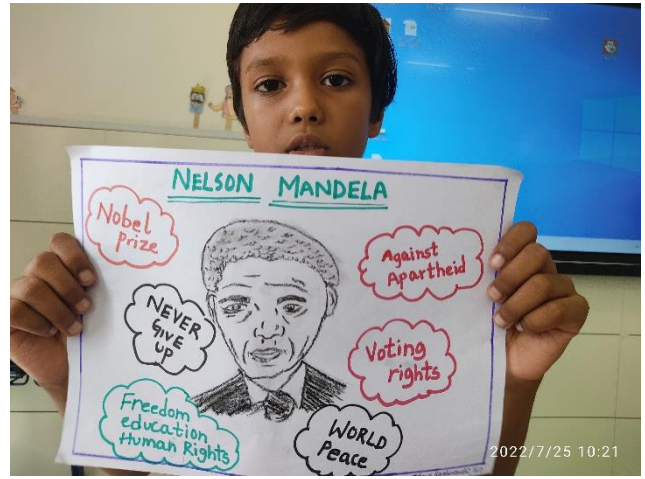 NELSON MANDELA
Nobel
prize
Against
Apartheid
NEVER
GIVE
UP
Voting
rights
Freedom
education
Human Rights
WORLD
Peace
2022/7/25 10:21